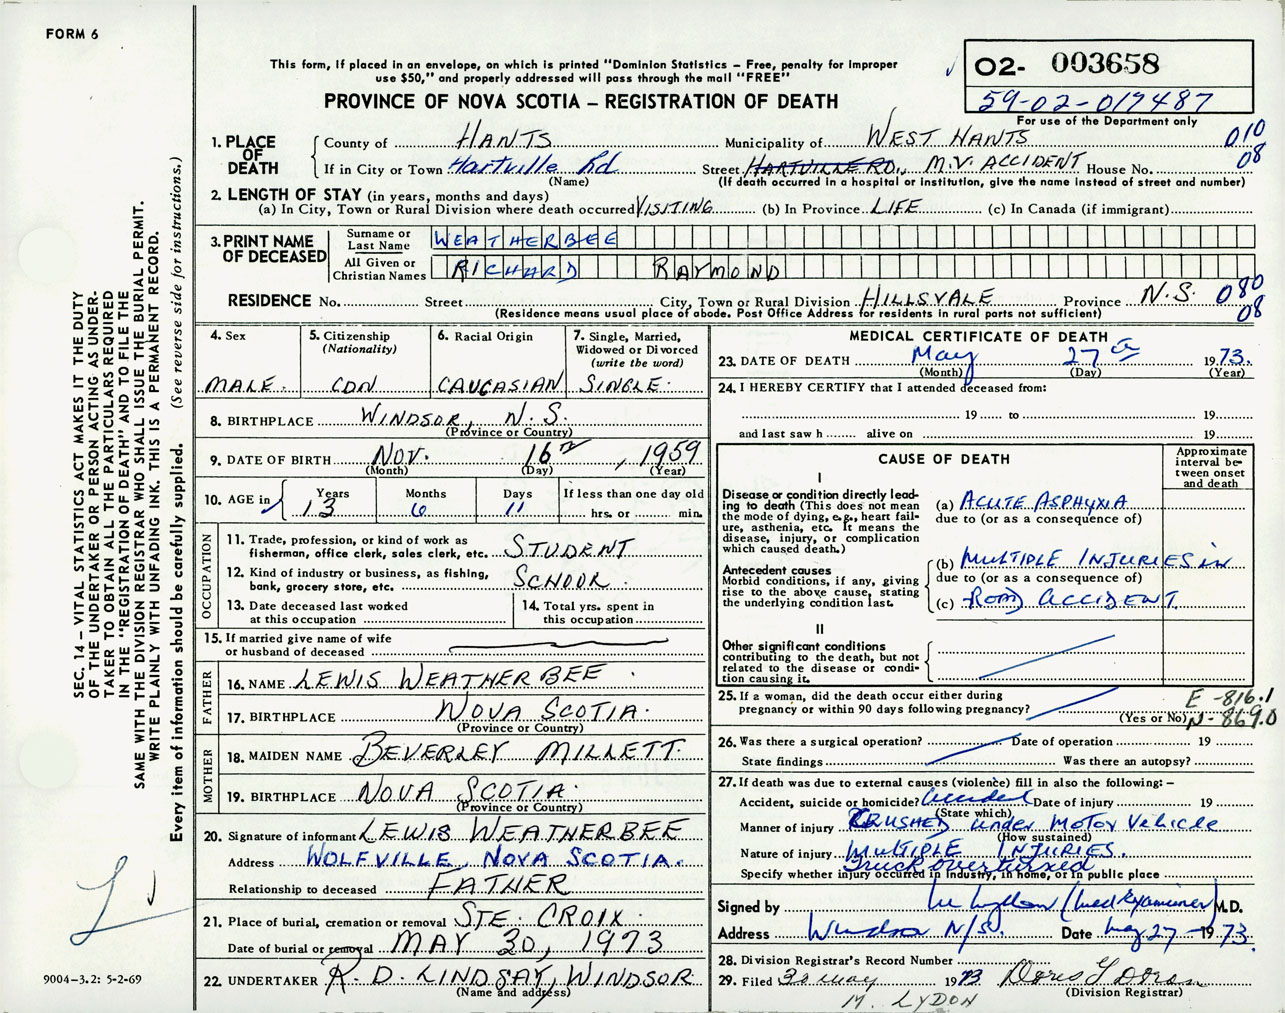 FORM 6
This form, if placed in an envelope, on which is printed "Dominion Statistics – Free, penalty for improper
use $50," and properly addressed will pass through the mail "FREE"
PROVINCE OF NOVA SCOTIA – REGISTRATION OF DEATH
02- 003658
59-02-017487
For use of the Department only
1. PLACE OF DEATH
County of HANTS Municipality of WEST HANTS 010
If in City or Town Hartville Rd Street HARTVILLE RD., M.V. ACCIDENT House No. 08
(Name) (If death occurred in a hospital or institution, give the name instead of street and number)
2. LENGTH OF STAY (in years, months and days)
(a) In City, Town or Rural Division where death occurred VISITING (b) In Province LIFE (c) In Canada (if immigrant)
3. PRINT NAME OF DECEASED
Surname or Last Name WEATHERBEE
All Given or Christian Names RICHARD RAYMOND
RESIDENCE No. Street City, Town or Rural Division HILLSVALE Province N.S. 080
(Residence means usual place of abode. Post Office Address for residents in rural parts not sufficient) 08
4. Sex
MALE.
5. Citizenship
(Nationality)
CDN
6. Racial Origin
CAUCASIAN
7. Single, Married,
Widowed or Divorced
(write the word)
SINGLE.
8. BIRTHPLACE WINDSOR, N.S.
(Province or Country)
9. DATE OF BIRTH NOV. 16, 1959
(Month) (Day) (Year)
10. AGE in Years Months Days If less than one day old
13 6 11 hrs. or min.
OCCUPATION
11. Trade, profession, or kind of work as
fisherman, office clerk, sales clerk, etc. STUDENT
12. Kind of industry or business, as fishing,
bank, grocery store, etc. SCHOOL.
13. Date deceased last worked
at this occupation
14. Total yrs. spent in
this occupation
15. If married give name of wife
or husband of deceased
FATHER
16. NAME LEWIS WEATHERBEE.
17. BIRTHPLACE NOVA SCOTIA.
(Province or Country)
MOTHER
18. MAIDEN NAME BEVERLEY MILLETT.
19. BIRTHPLACE NOVA SCOTIA.
(Province or Country)
20. Signature of informant LEWIS WEATHERBEE
Address WOLFVILLE, NOVA SCOTIA.
Relationship to deceased FATHER
21. Place of burial, cremation or removal STE. CROIX.
Date of burial or removal MAY 30, 1973
22. UNDERTAKER R. D. LINDSAY, WINDSOR
(Name and address)
MEDICAL CERTIFICATE OF DEATH
23. DATE OF DEATH May 27th 1973.
(Month) (Day) (Year)
24. I HEREBY CERTIFY that I attended deceased from:
19 to 19
and last saw h alive on 19
CAUSE OF DEATH
Approximate
interval be-
tween onset
and death
I
Disease or condition directly lead-
ing to death (This does not mean
the mode of dying, e.g., heart fail-
ure, asthenia, etc. It means the
disease, injury, or complication
which caused death.)
(a) ACUTE ASPHYXIA
due to (or as a consequence of)
Antecedent causes
Morbid conditions, if any, giving
rise to the above cause, stating
the underlying condition last.
(b) MULTIPLE INJURIES in
due to (or as a consequence of)
(c) ROAD ACCIDENT
II
Other significant conditions
contributing to the death, but not
related to the disease or condi-
tion causing it.
25. If a woman, did the death occur either during
pregnancy or within 90 days following pregnancy?
(Yes or No)
E-816.1
N-869.0
26. Was there a surgical operation? Date of operation 19
State findings Was there an autopsy?
27. If death was due to external causes (violence) fill in also the following: –
Accident, suicide or homicide? Accident Date of injury 19
(State which)
Manner of injury CRUSHED under Motor Vehicle
(How sustained)
Nature of injury MULTIPLE INJURIES.
Truck overturned
Specify whether injury occurred in industry, in home, or in public place
Signed by M Lydon (Med Examiner) M.D.
Address Windsor N/S. Date May 27 1973.
28. Division Registrar's Record Number
29. Filed 30 May 1973
(Division Registrar)
M. LYDON
SEC. 14 – VITAL STATISTICS ACT MAKES IT THE DUTY
OF THE UNDERTAKER OR PERSON ACTING AS UNDER-
TAKER TO OBTAIN ALL THE PARTICULARS REQUIRED
IN THE "REGISTRATION OF DEATH" AND TO FILE THE
SAME WITH THE DIVISION REGISTRAR WHO SHALL ISSUE THE BURIAL PERMIT.
WRITE PLAINLY WITH UNFADING INK. THIS IS A PERMANENT RECORD.
Every item of information should be carefully supplied. (See reverse side for instructions.)
9004-3.2: 5-2-69